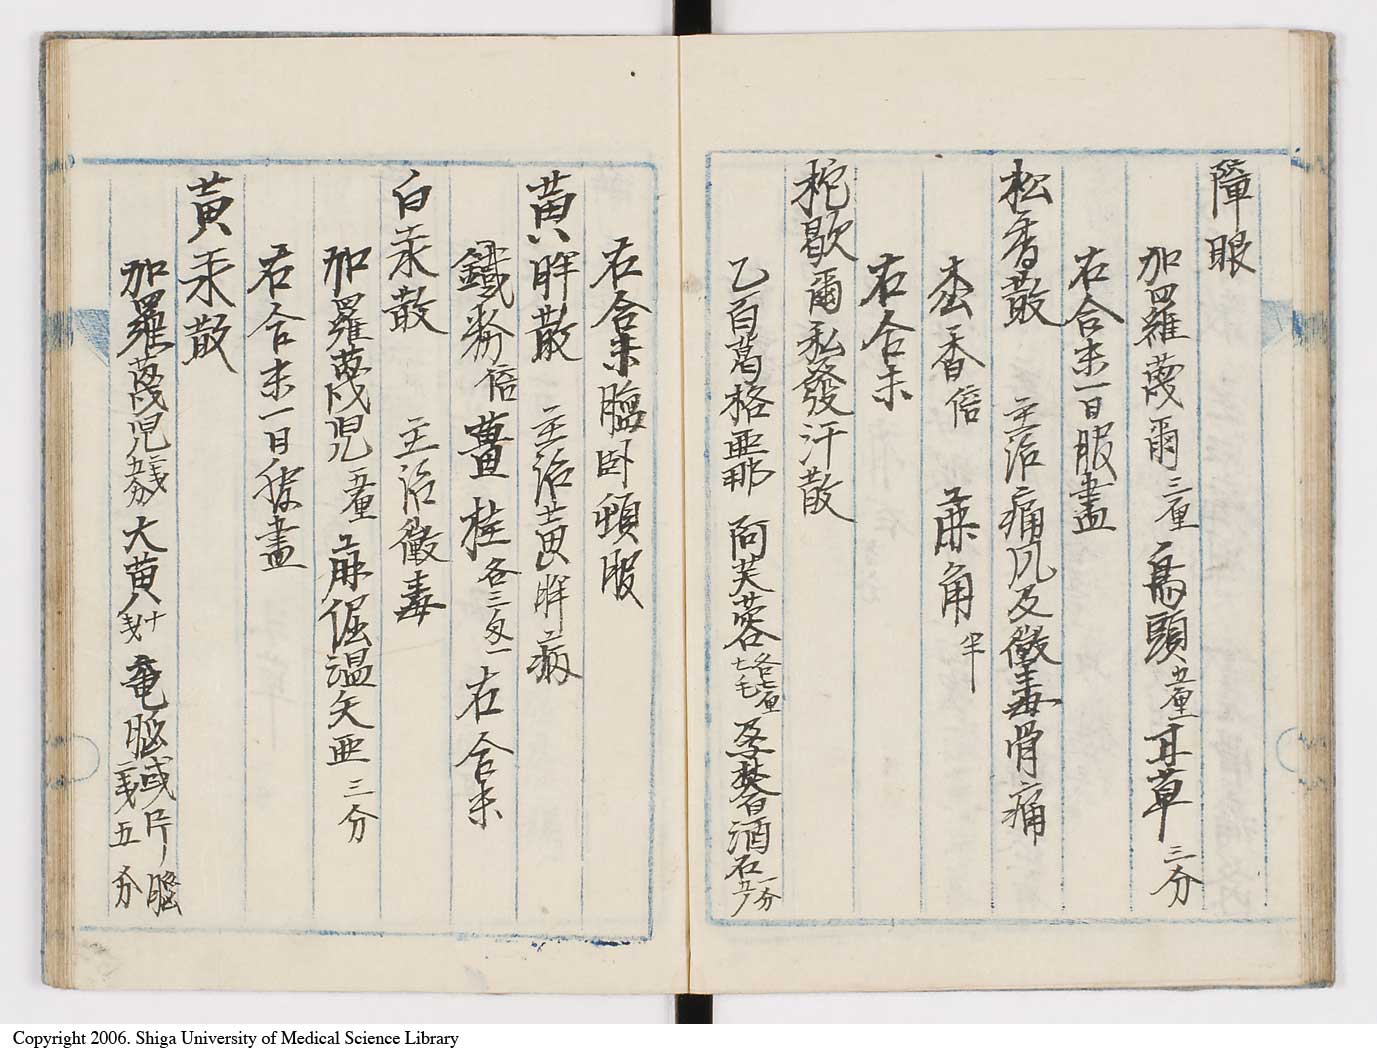 障眼
加羅蔑爾三厘 烏頭五厘 耳草三分
右合末一日服盡
松香散 主治痛風及黴毒骨痛
松香倍 鹿角半
右合末
杔歇爾私發汗散
乙百葛格亜那 阿芙蓉各七厘七毛 孕礬酒石一分五
右合末臨卧頓服
黄胖散 主治黄胖病
鐵粉倍 薑 桂各三匁一 右合末
白汞散 主治黴毒
加羅蔑児五厘 麻倔涅矢亜三分
右合末一日服盡
黄汞散
加羅蔑児二戔五分 大黄十戔 竜脳或片脳二戔五分
Copyright 2006. Shiga University of Medical Science Library